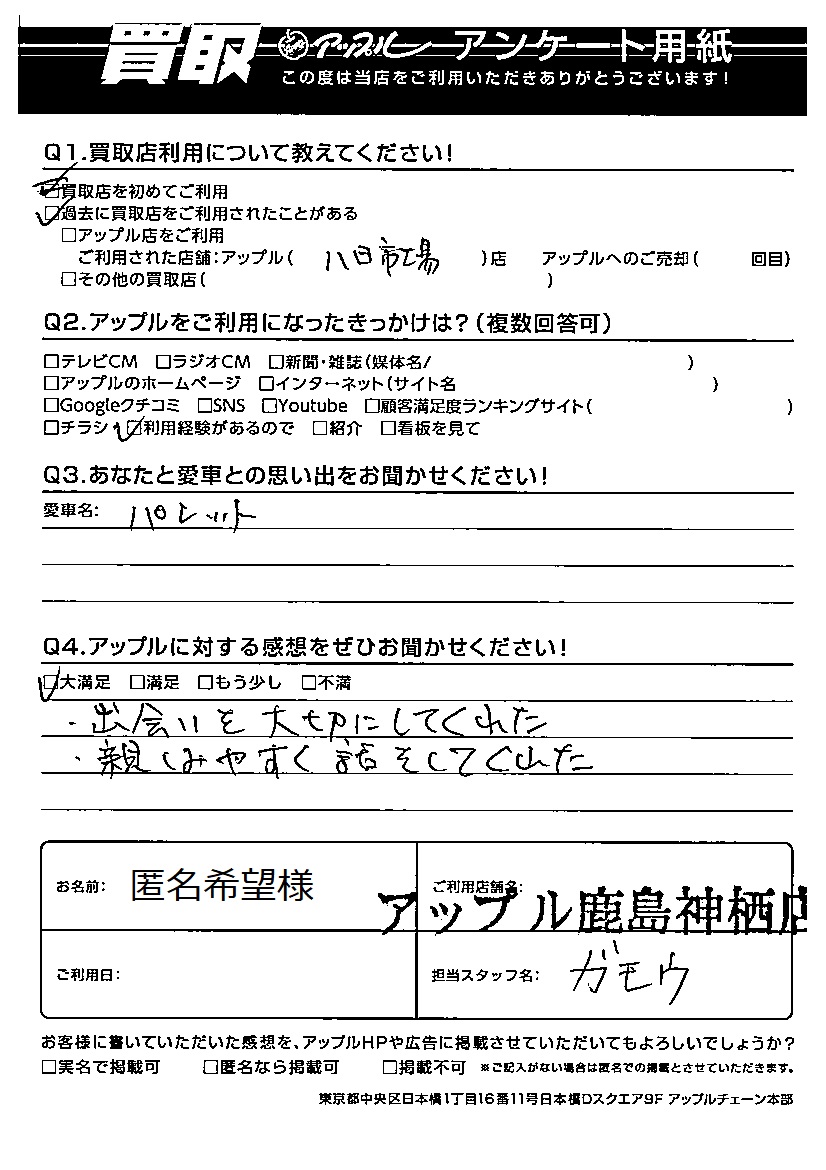 買取 アップル アンケート用紙
この度は当店をご利用いただきありがとうございます!
Q1.買取店利用について教えてください!
☑買取店を初めてご利用
☑過去に買取店をご利用されたことがある
□アップル店をご利用
ご利用された店舗:アップル( 八日市場 )店 アップルへのご売却( 回目)
□その他の買取店( )
Q2.アップルをご利用になったきっかけは?(複数回答可)
□テレビCM □ラジオCM □新聞・雑誌(媒体名/ )
□アップルのホームページ □インターネット(サイト名 )
□Googleクチコミ □SNS □Youtube □顧客満足度ランキングサイト( )
□チラシ ☑利用経験があるので □紹介 □看板を見て
Q3.あなたと愛車との思い出をお聞かせください!
愛車名: パレット
Q4.アップルに対する感想をぜひお聞かせください!
☑大満足 □満足 □もう少し □不満
・出会いを大切にしてくれた
・親しみやすく話そしてくれた
お名前: 匿名希望様
ご利用店舗名: アップル鹿島神栖店
ご利用日:
担当スタッフ名: ガモウ
お客様に書いていただいた感想を、アップルHPや広告に掲載させていただいてもよろしいでしょうか?
□実名で掲載可 □匿名なら掲載可 □掲載不可 ※ご記入がない場合は匿名での掲載とさせていただきます。
東京都中央区日本橋1丁目16番11号日本橋Dスクエア9F アップルチェーン本部